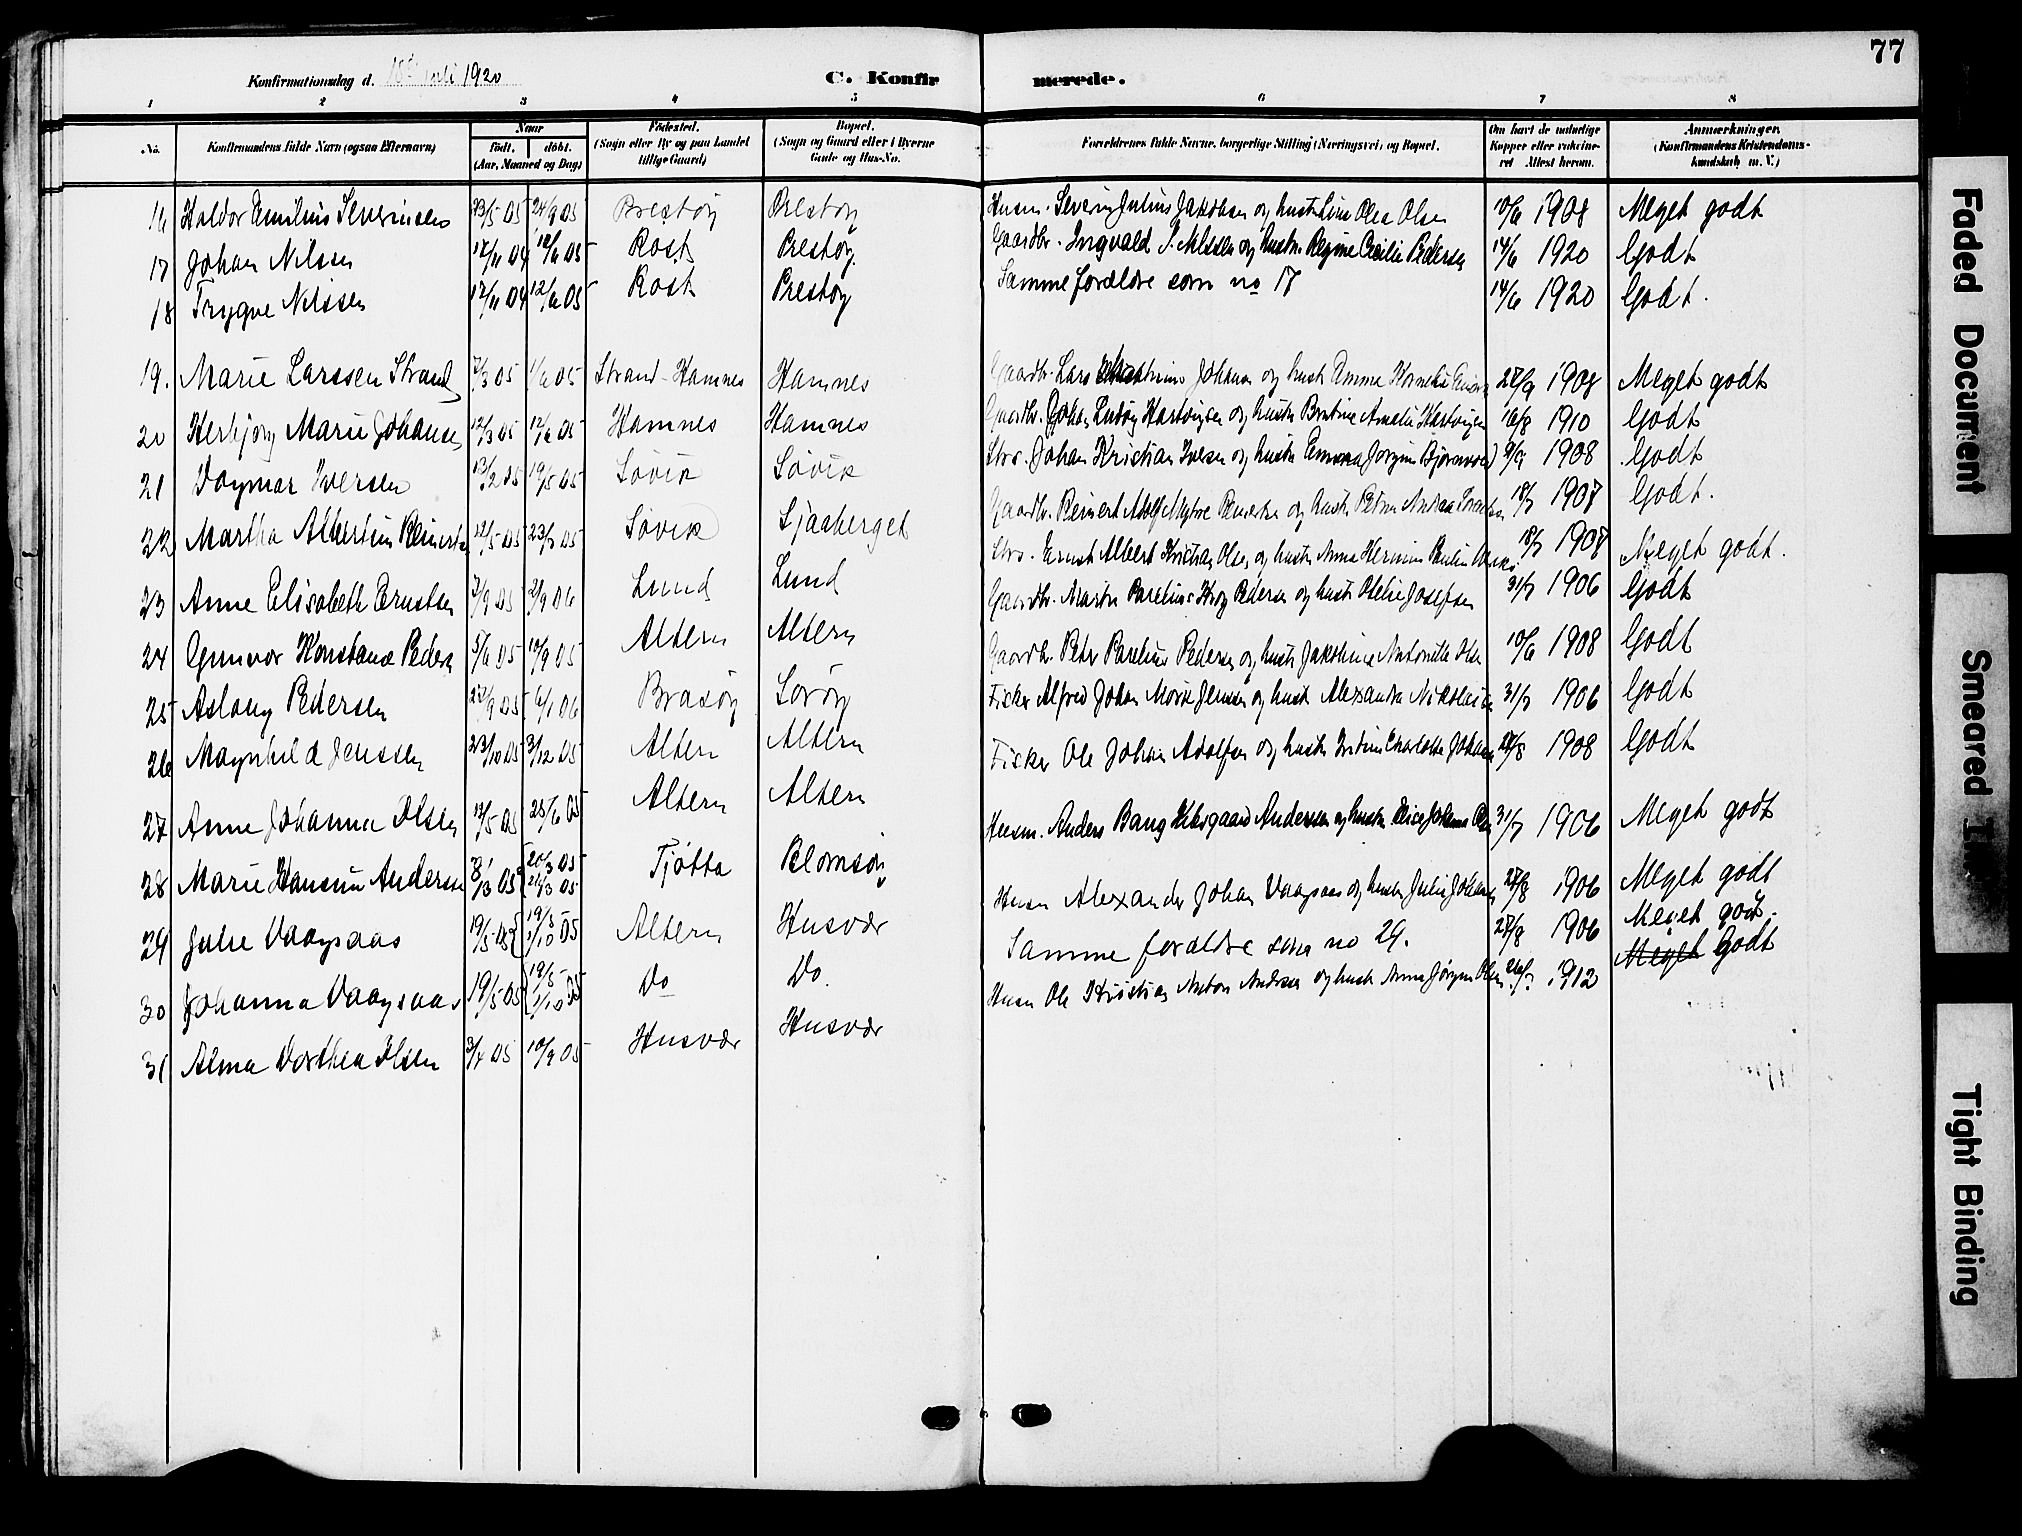 77
Konfirmationsdag d. 18 juli 1920
C. Konfirmerede.
1 2 3 4 5 6 7 8
No. Konfirmandens fulde Navn (ogsaa Efternavn) Naar født. døbt. (Aar, Maaned og Dag) Fødested. (Sogn eller By og paa Landet tillige Gaard) Bopæl. (Sogn og Gaard eller i Byerne Gade og Hus-No. Forældrenes fulde Navne, borgerlige Stilling (Næringsvei) og Bopæl. Om havt de naturlige Kopper eller vaccineret Attest herom. Anmærkninger. (Konfirmandens Kristendomskundskab m. V.)
16 Haldor Emilius Severinsen 23/5 05 24/9 05 Prestøy Prestøy Husm. Severin Julius Jakobsen og hustr Lina Olea Olsen 10/6 1908 Meget godt
17 Johan Nilsen 17/11 04 12/6 05 Rost Prestøy Gaardbr. Ingvald J. Nilssen og hustr. Regine Cecilie Pedersen 14/6 1920 Godt
18 Trygve Nilssen 17/11 04 12/6 05 Rost Prestøy Samme foreldre som no 17 14/6 1920 Godt.
19. Marie Larssen Strand 7/3 05 1/6 05 Strand-Hamnes Hamnes Gaardbr. Lars Johansen og hustr Emma Kornelie 28/9 1908 Meget godt
20 Herbjørg Marie Johansen 12/3 05 12/6 05 Hamnes Hamnes Gaardbr. Johan Ludvig Hartvigsen og hustr Bertine Amalie Hartvigsen 16/8 1910 Godt
21 Dagmar Iversen 13/2 05 19/5 05 Søvik Søvik Johan Kristian Iversen og hustr Emma Jørgine 9/9 1908 Godt
22 Martha Albertine Reinertsen 12/5 05 23/7 05 Søvik Sjaaberget Gaardbr. Reinert Adolf og hustr Petra Andrea 18/7 1907 Godt.
23 Anne Elisabeth Ernstsen 7/9 05 2/9 06 Lund Lund Ernst Albert Kristian Olsen og hustr Anna Hermine Paulin 18/7 1907 Meget godt.
24 Gunvor Konstanse Pedersen 5/6 05 10/9 05 Altern Altern Gaardbr. Martin Parelius Krog Pedersen og hustr Otelie Josefsen 31/7 1906 Godt
25 Aslaug Pedersen 27/9 05 6/1 06 Brasøy Sørøy Gaardbr. Peter Parelius Pedersen og hustr Jakobine Antonette Olsen 10/6 1908 Godt
26 Magnhild Jenssen 23/10 05 3/12 05 Altern Altern Fisker Alfred Johan Movik Jenssen og hustr Alexandra Nikolaisen 31/7 1906 Godt
27 Anne Johanna Olsen 13/5 05 25/6 05 Altern Altern Fisker Ole Johan Adolfsen og hustr Charlotte Johansen 28/8 1908 Godt
28 Marie Hansine Andersen 8/13 05 20/3 05 26/3 05 Tjøtta Blomsøy Husm. Anders Bang Andersen og hustr Johanna Olsen 31/7 1906 Meget godt
29 Julie Vaagsaas 19/5 05 19/5 1/10 05 Altern Husvær Husm Alexander Johan Vaagsaas og hustr Julie Johansen 27/8 1906 Meget godt
30 Johanna Vaagsaas 19/5 05 19/5 1/10 05 Do Do. Samme foreldre som no 29. 27/8 1906 Meget godt.
31 Alma Dorthea Olsen 3/7 05 10/9 05 Husvær Husvær Husm Ole Kristian Anton Andersen og hustr Anna Jørgine Olsen 26/7 1912 Meget Godt
Faded Document
Smeared Ink
Tight Binding